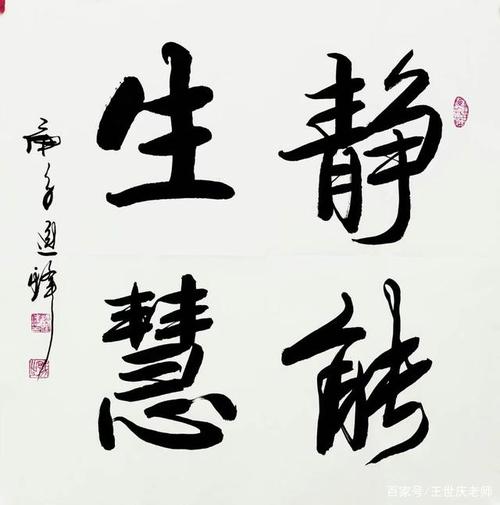 静能
生慧
百家号/王世庆老师